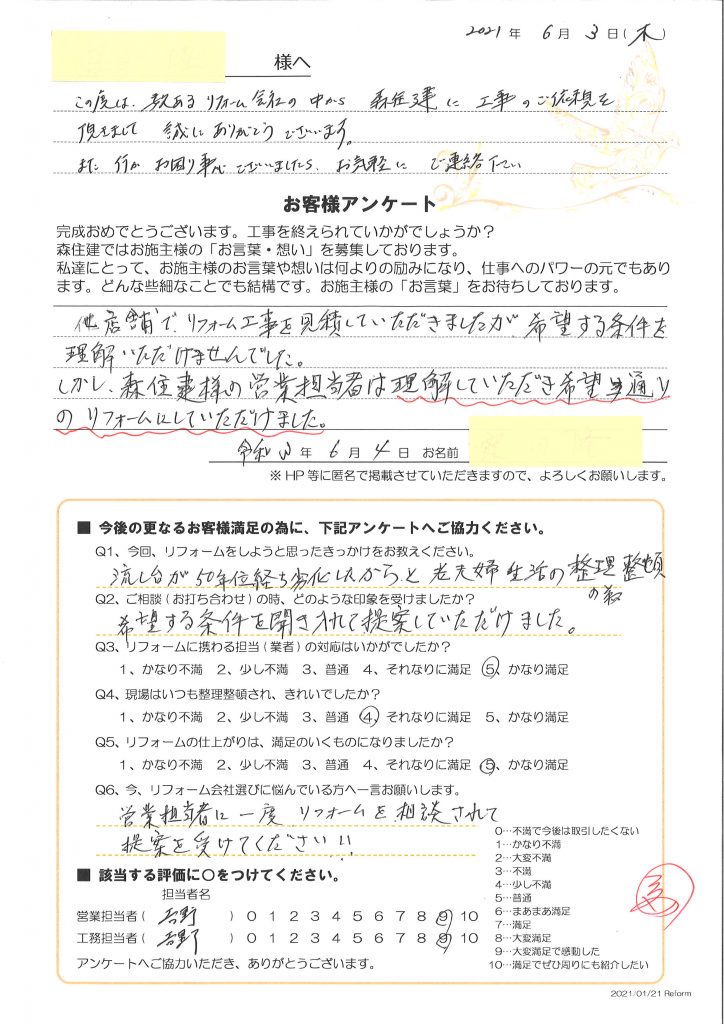 2021 年 6 月 3 日(木)
様へ
この度は、数あるリフォーム会社の中から 森住建に 工事のご依頼を
頂きまして 誠にありがとうございます。
また 何か お困り事がございましたら、お気軽に ご連絡下さい
お客様アンケート
完成おめでとうございます。工事を終えられていかがでしょうか？
森住建ではお施主様の「お言葉・想い」を募集しております。
私達にとって、お施主様のお言葉や想いは何よりの励みになり、仕事へのパワーの元でもあり
ます。どんな些細なことでも結構です。お施主様の「お言葉」をお待ちしております。
他店舗で、リフォーム工事を見積していただきましたが、希望する条件を
理解いただけませんでした。
しかし、森住建様の営業担当者は理解していただき希望通り
のリフォームにしていただけました。
令和 年 6 月 4 日 お名前
※HP等に匿名で掲載させていただきますので、よろしくお願いします。
■ 今後の更なるお客様満足の為に、下記アンケートへご協力ください。
Q1、今回、リフォームをしようと思ったきっかけをお教えください。
流し台が50年位経ち劣化したからと 老夫婦生活の整理整頓
の為
Q2、ご相談（お打ち合わせ）の時、どのような印象を受けましたか？
希望する条件を聞き入れて提案していただけました。
Q3、リフォームに携わる担当（業者）の対応はいかがでしたか？
1、かなり不満 2、少し不満 3、普通 4、それなりに満足 5、かなり満足
Q4、現場はいつも整理整頓され、きれいでしたか？
1、かなり不満 2、少し不満 3、普通 4、それなりに満足 5、かなり満足
Q5、リフォームの仕上がりは、満足のいくものになりましたか？
1、かなり不満 2、少し不満 3、普通 4、それなりに満足 5、かなり満足
Q6、今、リフォーム会社選びに悩んでいる方へ一言お願いします。
営業担当者に一度 リフォームを相談されて
提案を受けてください!!
0…不満で今後は取引したくない
1…かなり不満
2…大変不満
3…不満
4…少し不満
5…普通
6…まあまあ満足
7…満足
8…大変満足
9…大変満足で感動した
10…満足でぜひ周りにも紹介したい
■ 該当する評価に〇をつけてください。
担当者名
営業担当者( 吉野 ) 0 1 2 3 4 5 6 7 8 9 10
工務担当者( 吉野 ) 0 1 2 3 4 5 6 7 8 9 10
アンケートへご協力いただき、ありがとうございます。
2021/01/21 Reform